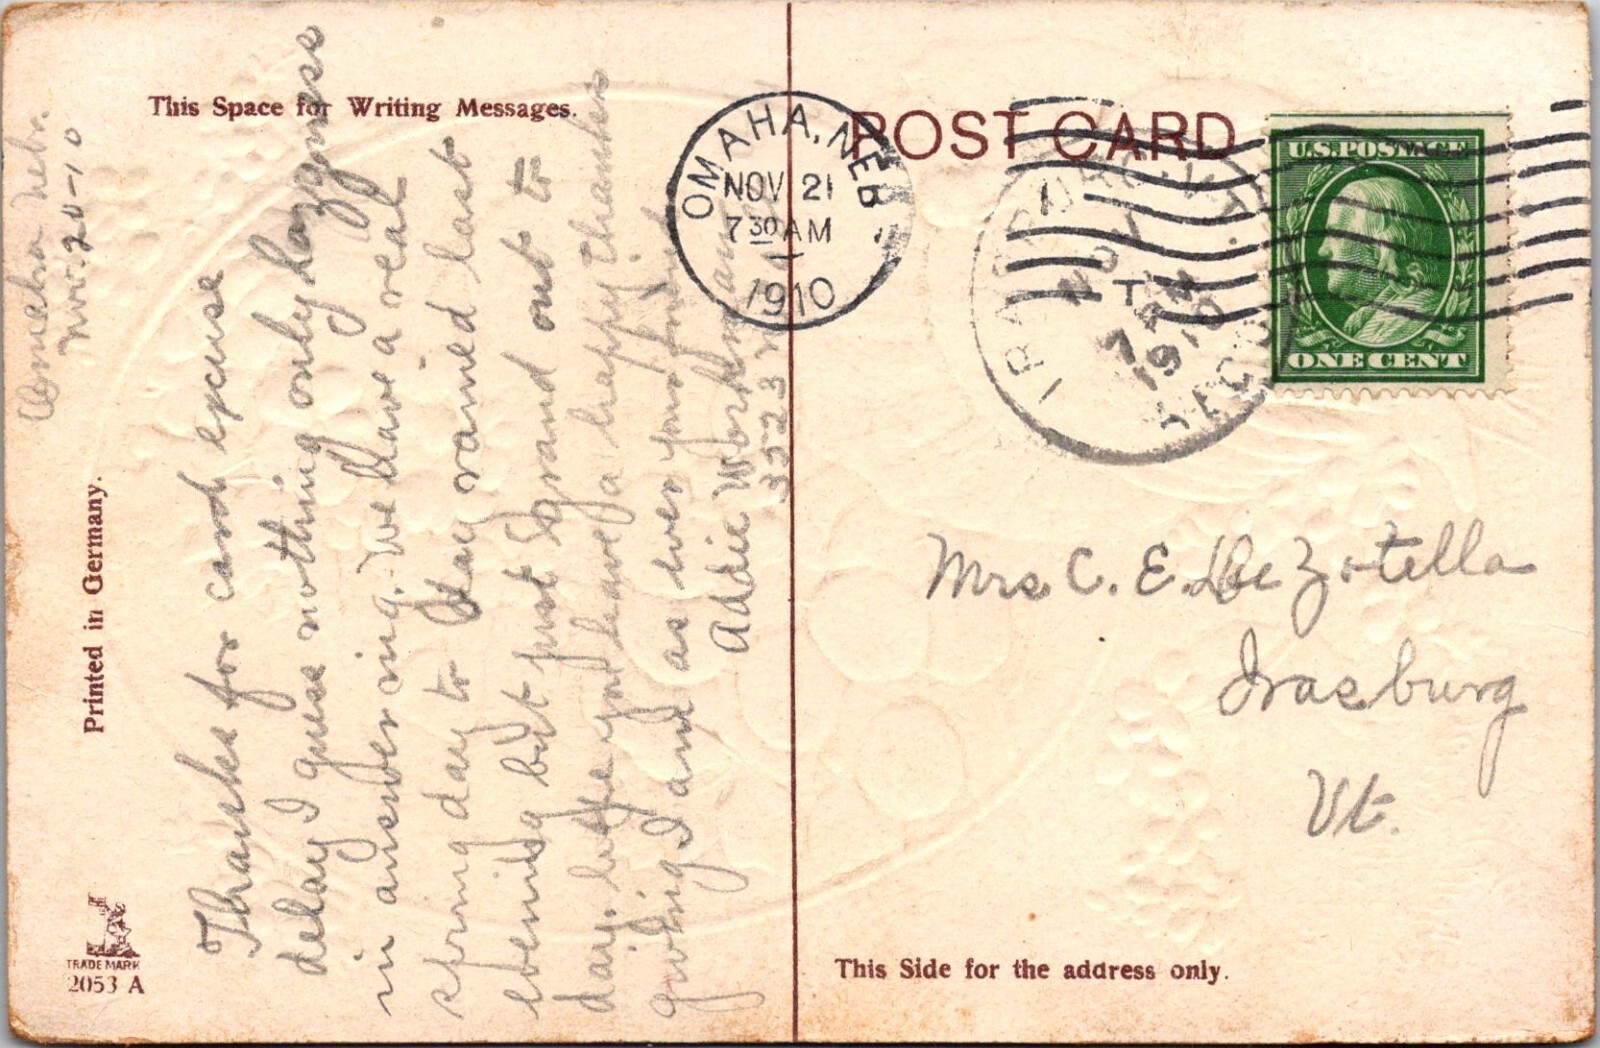 This Space for Writing Messages.
POST CARD
OMAHA, NEB.
NOV 21
7 30 AM
1910
IRASBURG, VT.
NOV
7 AM
1910
REC'D
U.S. POSTAGE
ONE CENT
Omaha Nebr.
Nov. 20-10
Thanks for card excuse
delay I guess nothing only lazyness
in answering. We have a real
spring day to day rained last
evening but just grand out to
day. hope you have a happy thanks
giving I am as ever your friend
Addie Workman
3523 N
Mrs C. E. De Zotella
Irasburg
Vt.
Printed in Germany.
TRADE MARK
2053 A
This Side for the address only.